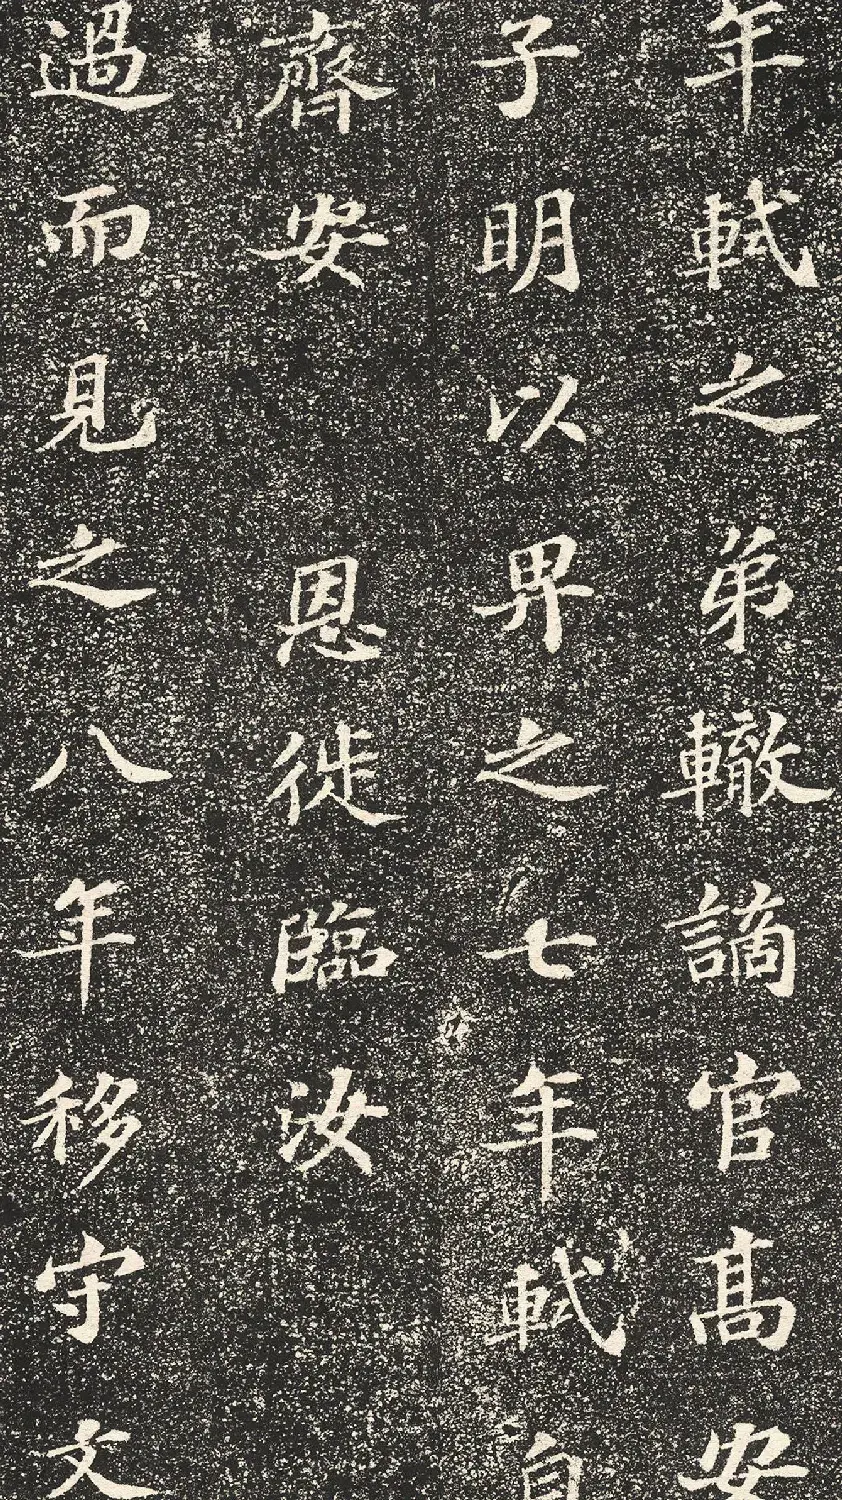 年軾之弟轍謫官髙安
子明以畀之七年軾自
齊安恩徙臨汝
過而見之八年移守文